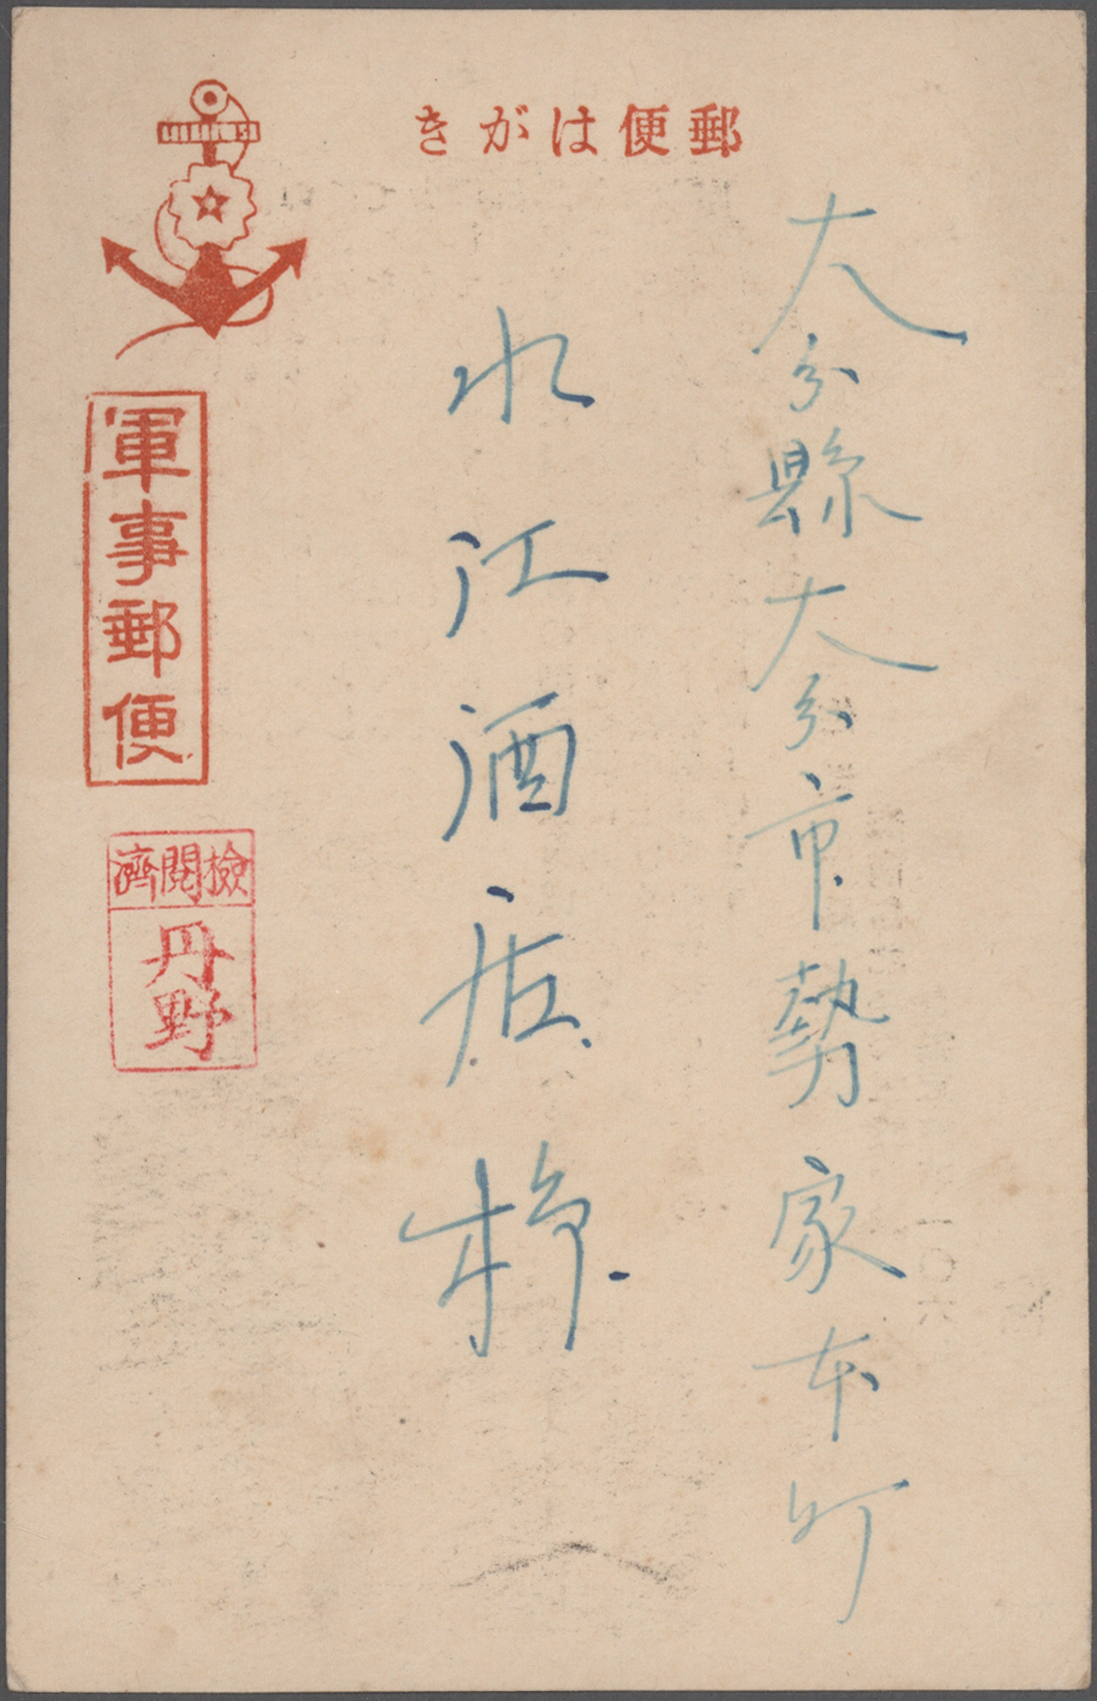 郵便はがき
大分縣大分市勢家本町
水江酒店様
軍事郵便
檢閲濟
丹野